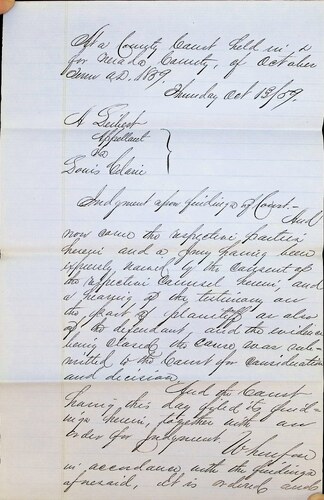 At a County Court held in &
for Nevada County, of October
Term A.D. 1859.
Thursday Oct 13/59.
A Seibert
Appellant
vs
Louis Clair
Judgment upon findings of Court.
And
now come the respective parties
herein and a Jury having been
expressly waived by the consent of
the respective Counsel herein, and
a hearing of the testimony on
the part of plaintiff as also
of the defendant, and the evidence
being closed the cause was sub-
mitted to the Court for consideration
and decision.
And the Court
having this day filed its find-
ings herein, together with an
order for judgment.
Wherefore
in accordance with the findings
aforesaid, it is ordered and